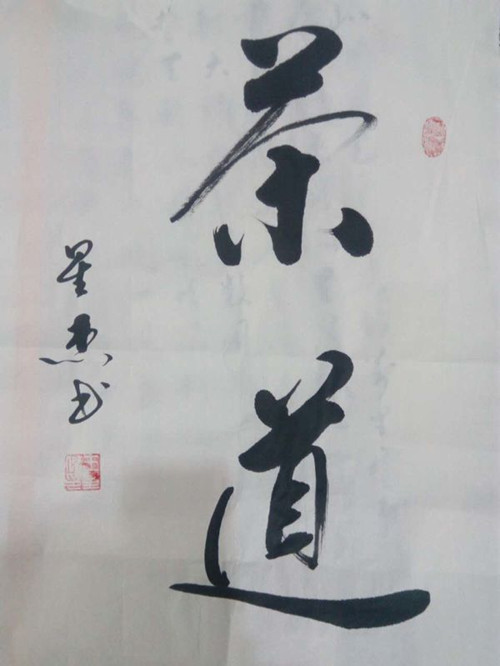 茶道
星杰书